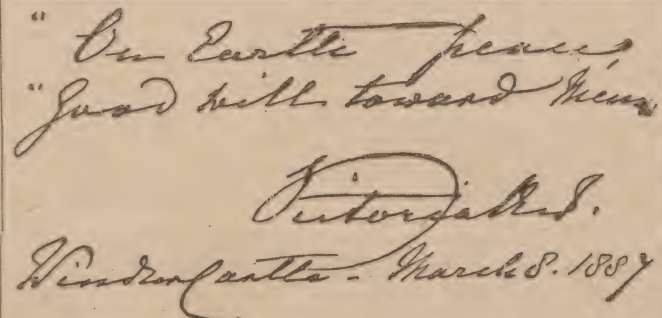 " On Earth peace
" Good will toward Men
Victoria R I.
Windsor Castle - March 8. 1887